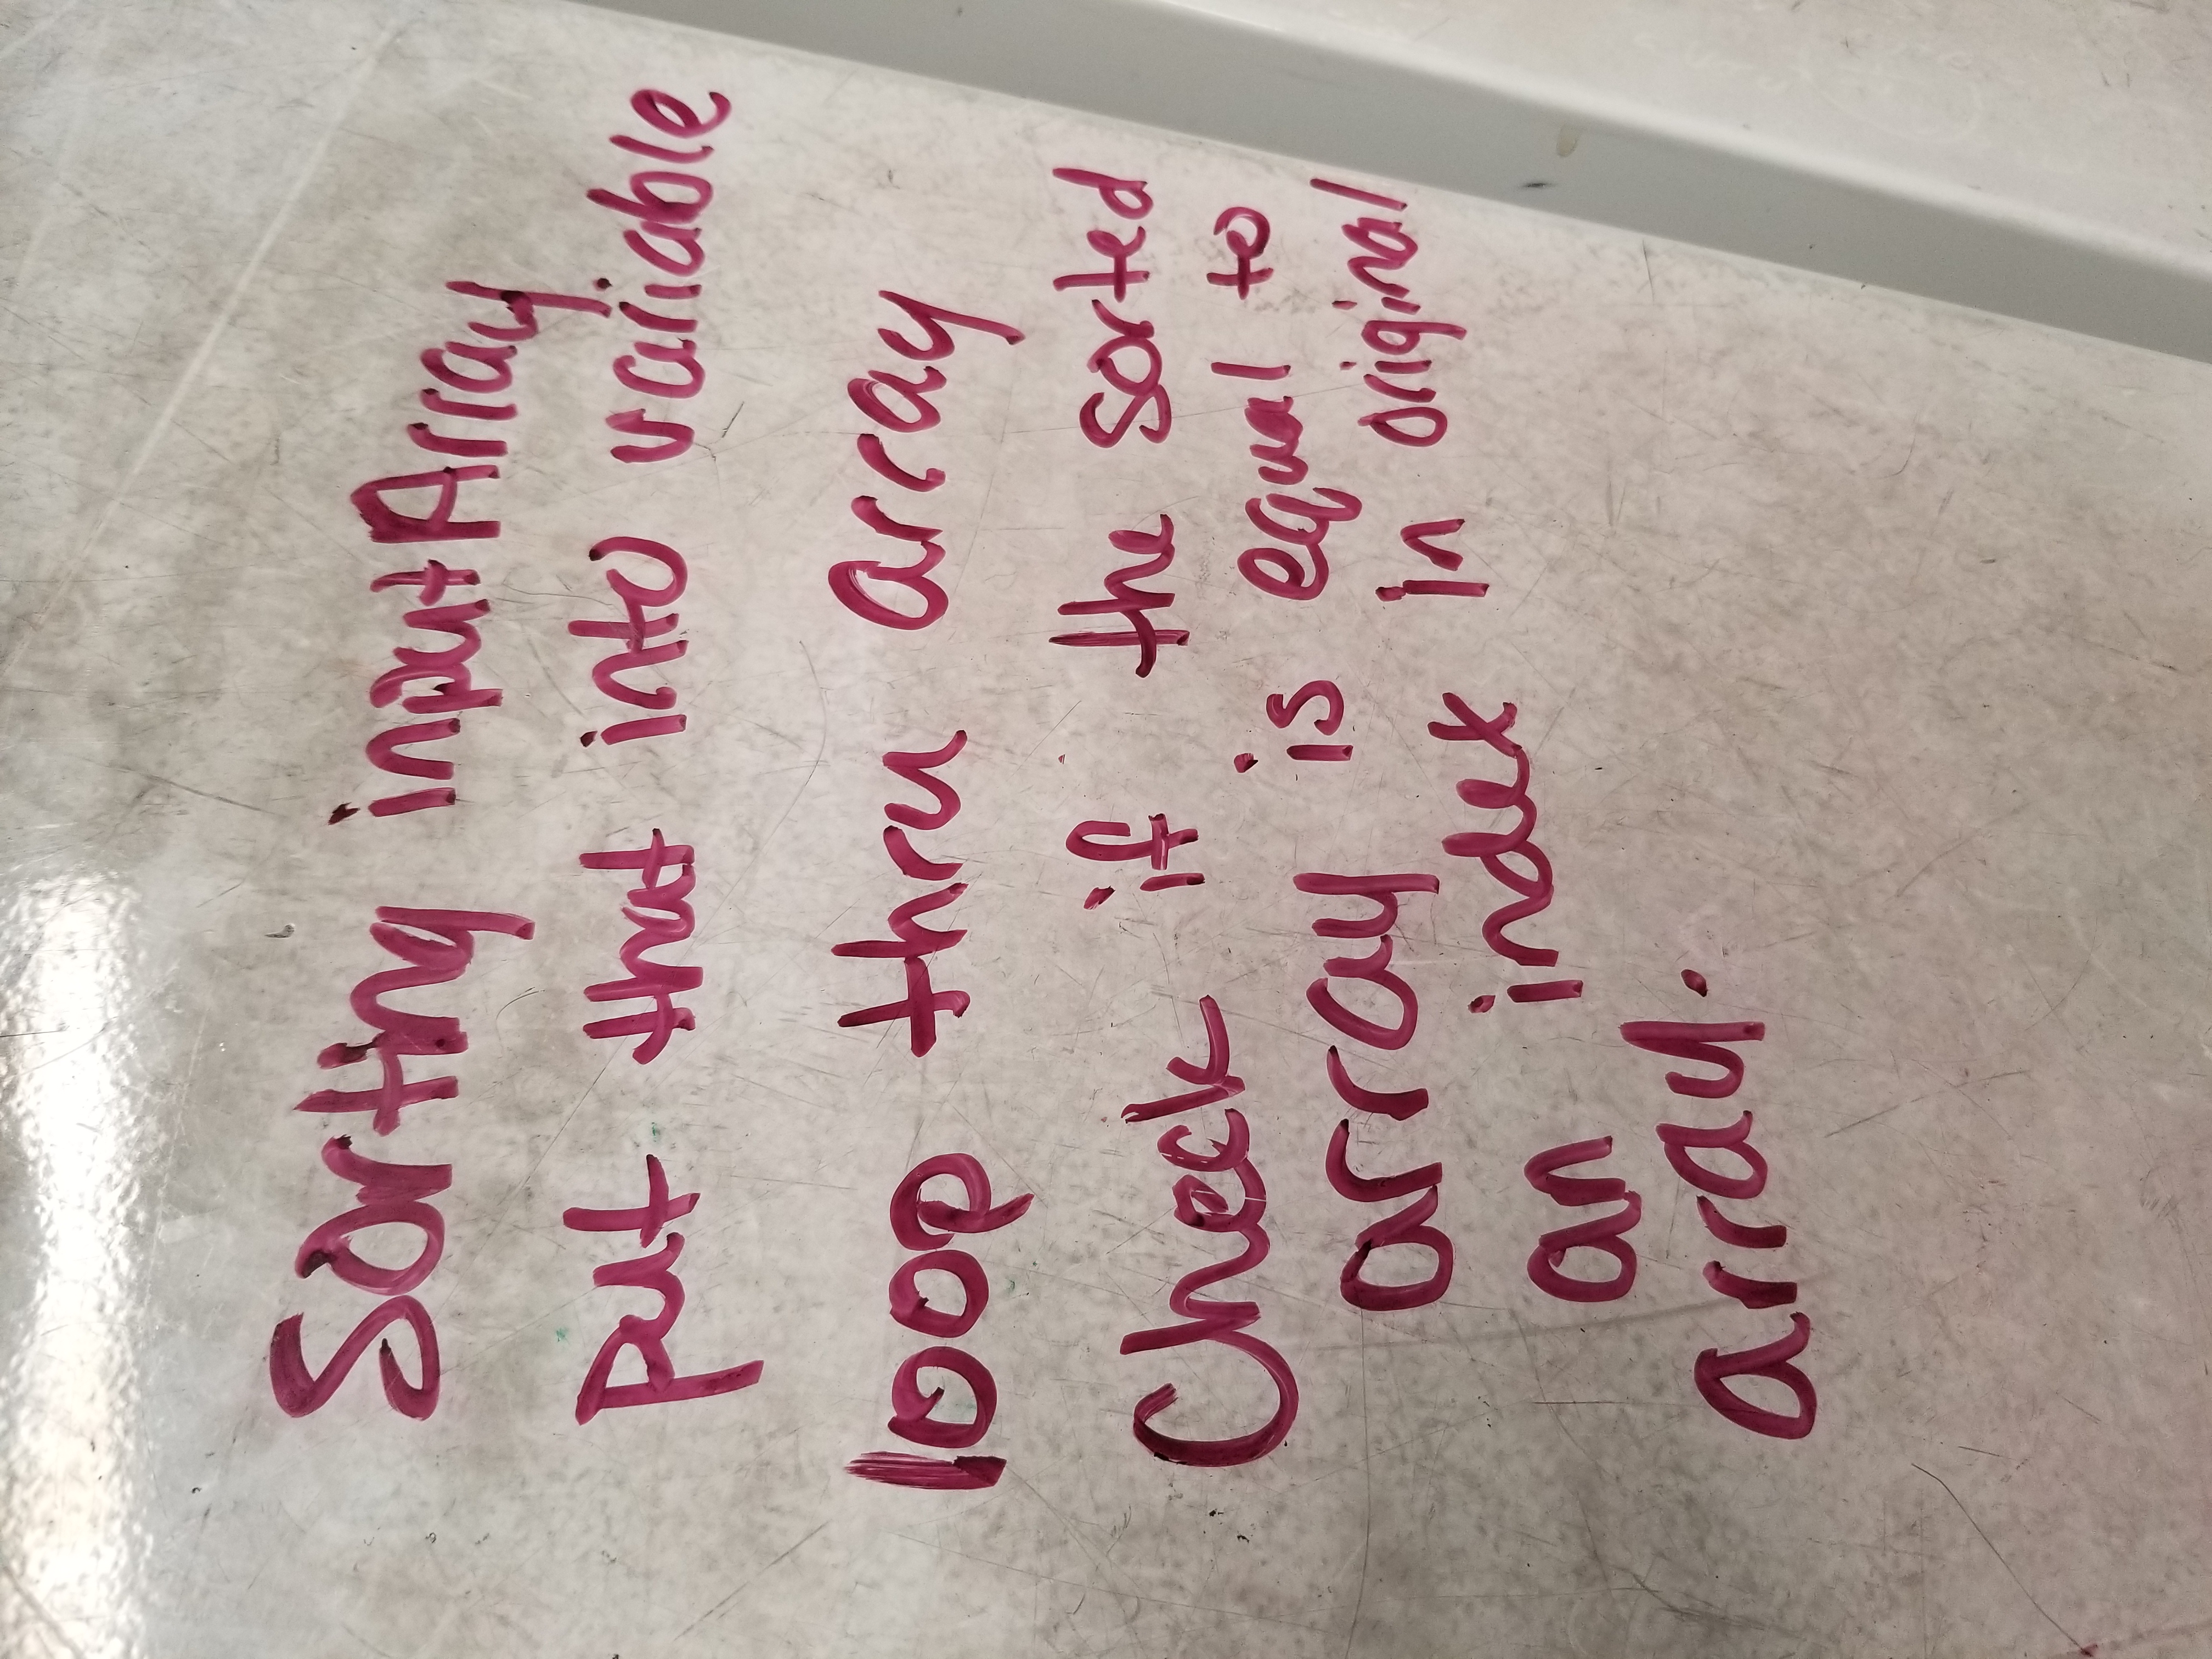 Sorting inputArray
put that into variable
loop thru array
Check if the sorted
array is equal to
an index in original
array.